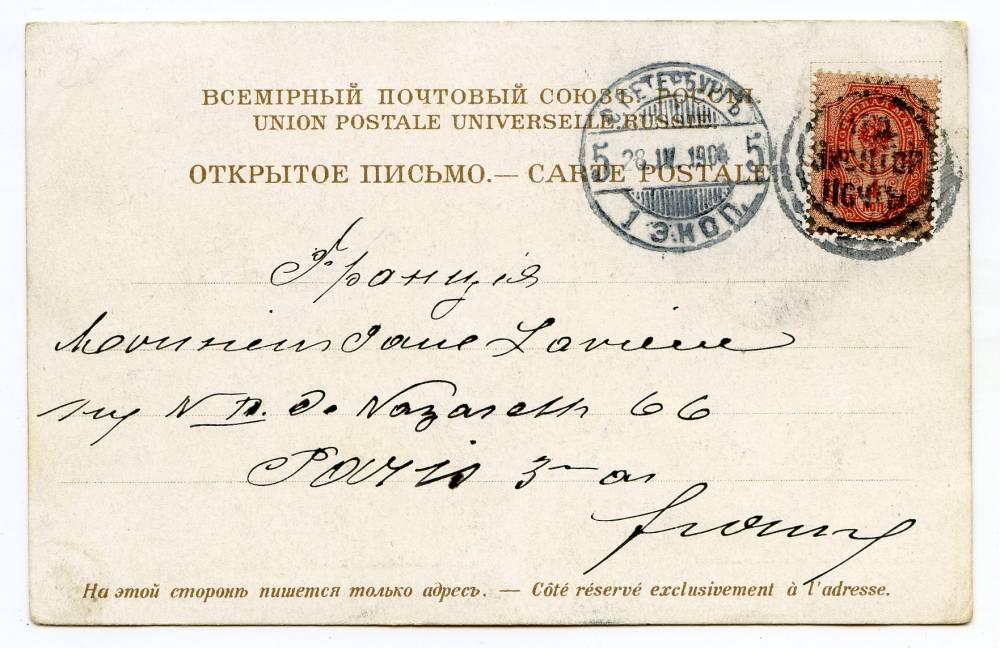 ВСЕМІРНЫЙ ПОЧТОВЫЙ СОЮЗЪ. РОССІЯ.
UNION POSTALE UNIVERSELLE. RUSSIE.
ОТКРЫТОЕ ПИСЬМО.— CARTE POSTALE
С.ПЕТЕРБУРГЪ
5 28.IV.1904 5
1 ЭКСП.
ПОЧТОВАЯ МАРКА
ПОЧТЫ
КОП
Франція
Monsieur Paul
N D. de Nazareth 66
Paris 3me ar
France
На этой сторонѣ пишется только адресъ. — Côté réservé exclusivement à l'adresse.